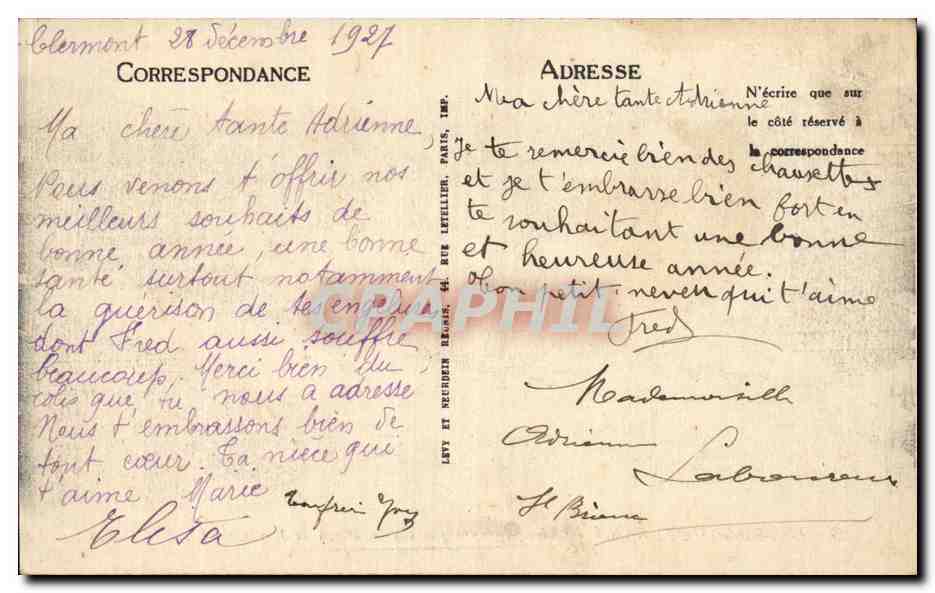 Clermont 28 décembre 1927
CORRESPONDANCE
Ma chère tante Adrienne,
Nous venons t'offrir nos
meilleurs souhaits de
bonne année, une bonne
santé surtout notamment
la guérison de tes engelures
dont Fred aussi souffre
beaucoup. Merci bien du
colis que tu nous a adressé
Nous t'embrassons bien de
tout cœur. Ta nièce qui
t'aime Marie
Elisa
LEVY ET NEURDEIN RÉUNIS, 44, RUE LETELLIER, PARIS, IMP.
ADRESSE
N'écrire que sur
le côté réservé à
la correspondance
Ma chère tante Adrienne
Je te remercie bien des chaussettes
et je t'embrasse bien fort en
te souhaitant une bonne
et heureuse année.
Mon petit neveu qui t'aime
Fred
Mademoiselle
Adrienne
St Brieuc
CPAPHIL